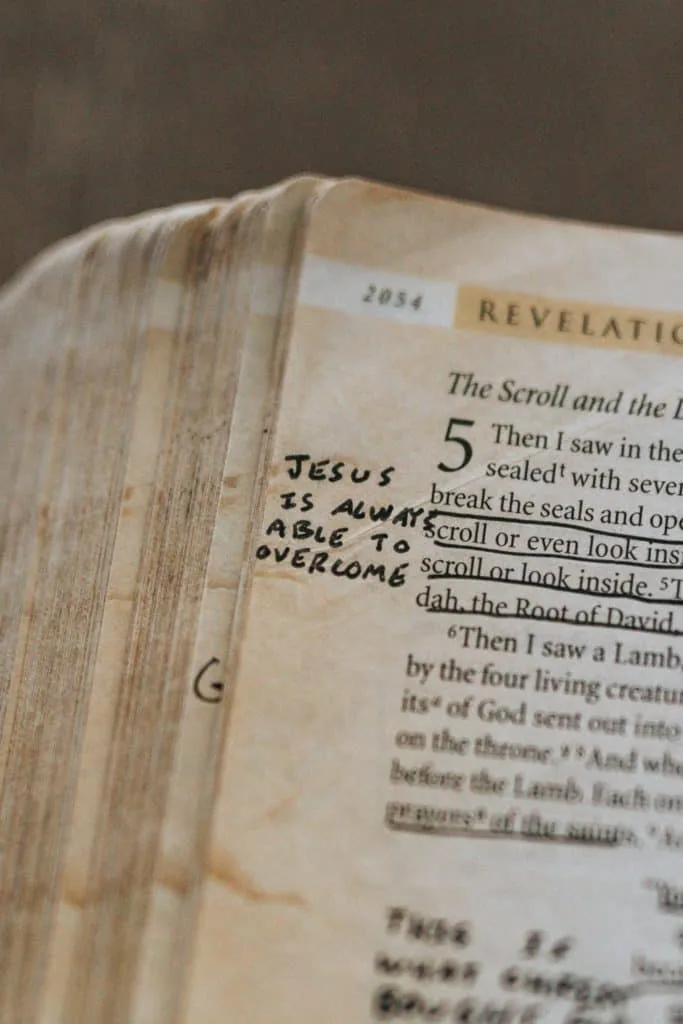 2054 REVELATIO
The Scroll and the L
5 Then I saw in the
sealedᵗ with seven
break the seals and ope
scroll or even look insi
scroll or look inside. ⁵T
dah, the Root of David,
⁶Then I saw a Lamb,
by the four living creatu
itsᵃ of God sent out into
on the throne. ⁸ ⁹And whe
before the Lamb. Each on
prayersᵃ of the saints.
JESUS
IS ALWAYS
ABLE TO
OVERCOME
G